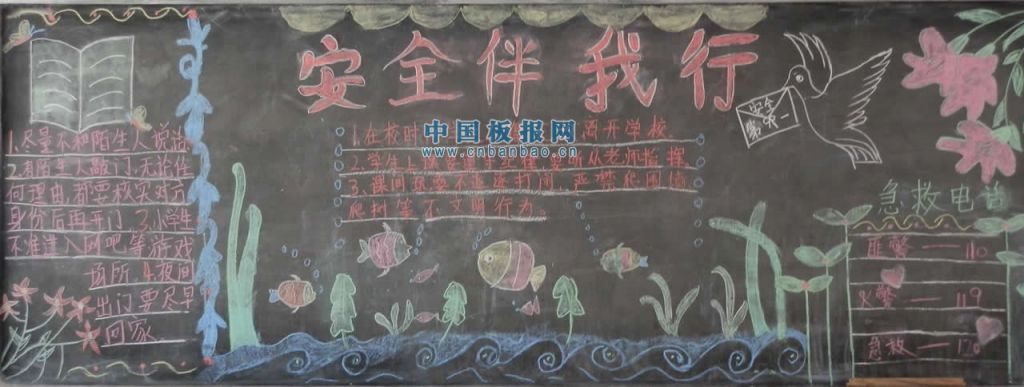 安全伴我行
安全
第一
1.尽量不和陌生人说话
2.有陌生人敲门,无论任
何理由,都要核实对方
身份后再开门 3.小学生
不准进入网吧等游戏
场所 4.夜间
出门要尽早
回家
1.在校时 离开学校.
中国板报网
www.cnbanbao.cn
2.学生上 从老师指挥
3.课间 不 追打闹,严禁爬围墙
爬树等不文明行为.
急救电话
匪警—110
火警—119
急救—120